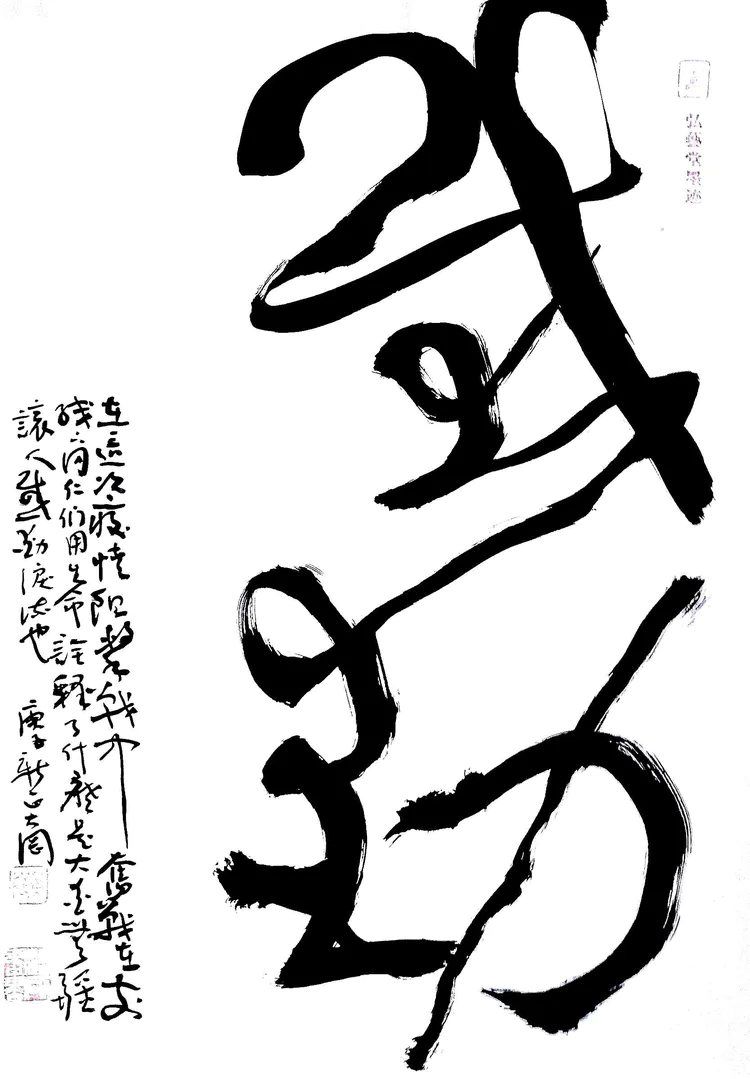 弘藝堂墨迹
感動
在這次疫情阻擊戰中奮戰在前
线之同仁们用生命詮釋了什麼是大愛無疆
讓人感動淚流也 庚子新正大